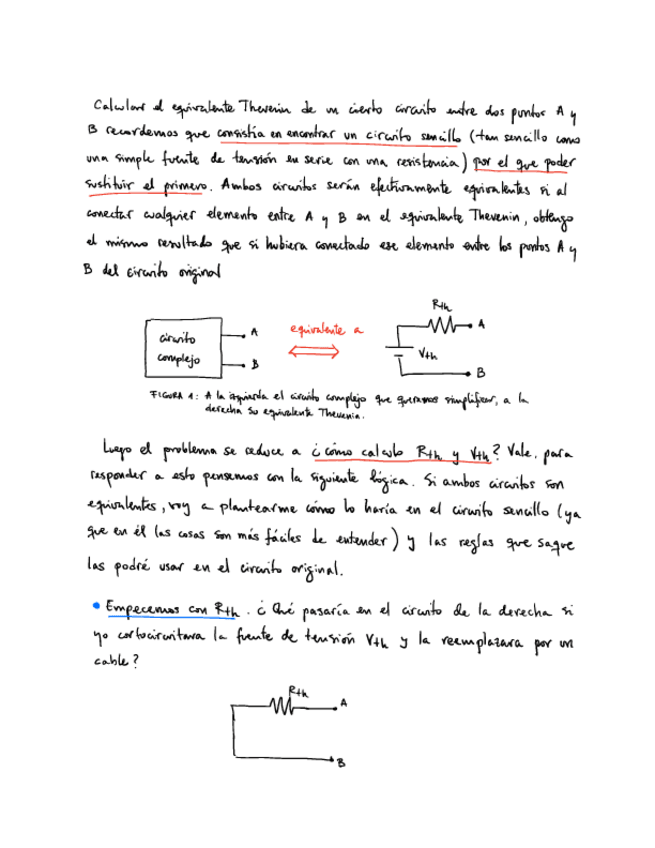 Calcular el equivalente Thevenin de un cierto circuito entre dos puntos A y
B recordemos que consistía en encontrar un circuito sencillo (tan sencillo como
una simple fuente de tensión en serie con una resistencia) por el que poder
sustituir el primero. Ambos circuitos serán efectivamente equivalentes si al
conectar cualquier elemento entre A y B en el equivalente Thevenin, obtengo
el mismo resultado que si hubiera conectado ese elemento entre los puntos A y
B del circuito original
circuito
complejo
A
B
equivalente a
Rth
A
Vth
B
FIGURA 1: A la izquierda el circuito complejo que queramos simplificar, a la
derecha su equivalente Thevenin.
Luego el problema se reduce a ¿cómo calculo Rth y Vth? Vale, para
responder a esto pensemos con la siguiente lógica. Si ambos circuitos son
equivalentes, voy a plantearme cómo lo haría en el circuito sencillo (ya
que en él las cosas son más fáciles de entender) y las reglas que saque
las podré usar en el circuito original.
• Empecemos con Rth. ¿Qué pasaría en el circuito de la derecha si
yo cortocircuitara la fuente de tensión Vth y la reemplazara por un
cable?
Rth
A
B